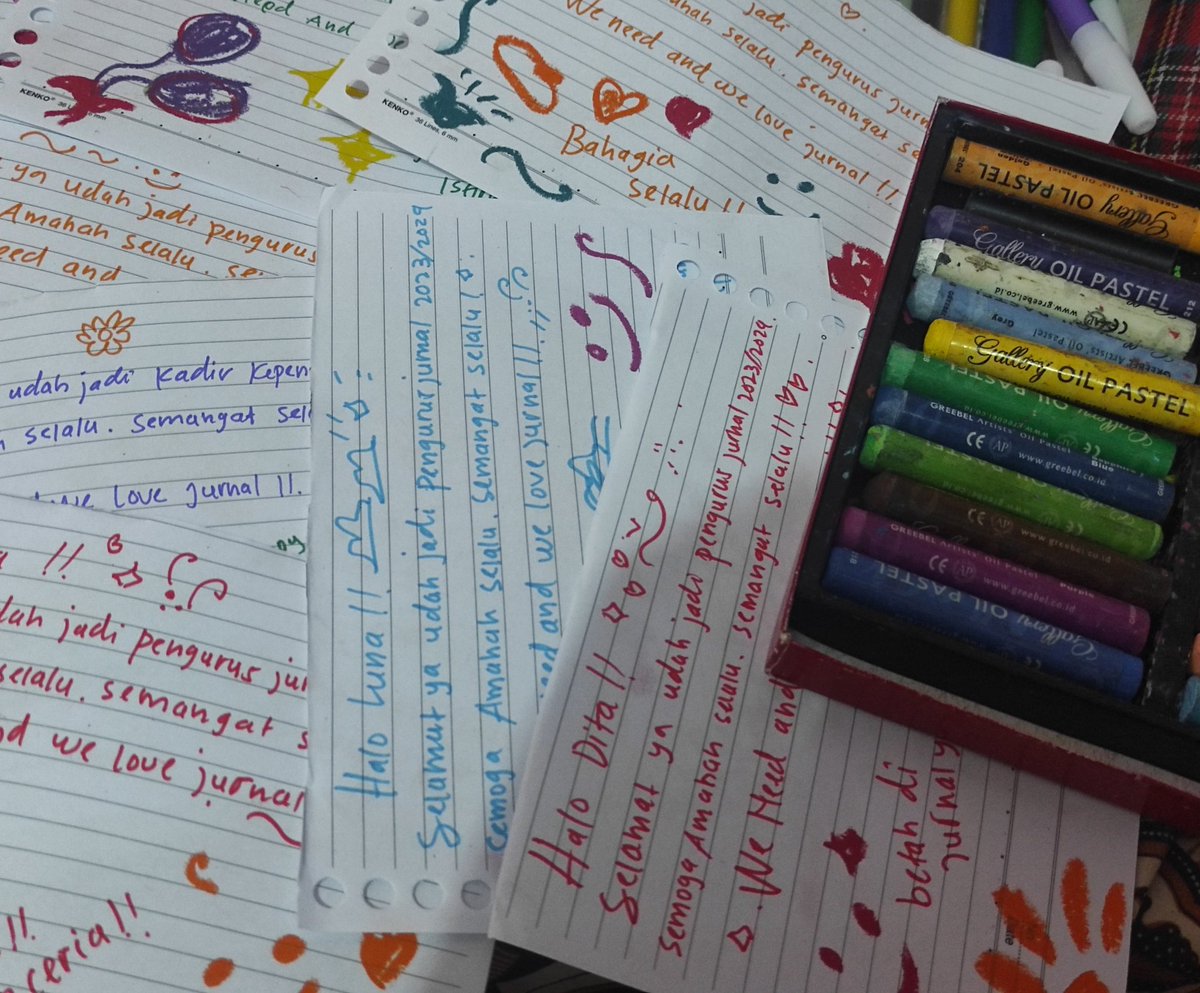 need And
KENKO®
We need and we love jurnal !!
jadi pengurus jurn
selalu. semangat se
KENKO® 36 Lines, 6 mm
Bahagia
selalu !!
ya udah jadi pengurus
Amanah selalu. se
eed and
udah jadi Kadiv Kepen
selalu. semangat sel
we love jurnal !!.
!!
dah jadi pengurus jur
selalu. semangat s
d we love jurnal
!!.
ceria!!
Halo Luna !!
Selamat ya udah jadi pengurus jurnal 2023/2024
semoga Amanah selalu. semangat selalu !
need and we love jurnal !!!
Halo Dita !!
Selamat ya udah jadi pengurus jurnal 2023/2024.
semoga Amanah selalu. semangat selalu !!
We Need and
betah di
jurnal
204 Golden
Gallery OIL PASTEL
Gallery OIL PASTEL
212
www.greebel.co.id
Grey
Gallery OIL PASTEL
OIL PASTEL
GREEBEL Artists' Oil Pastel Blue
CE AP www.greebel.co.id
GREEBEL Artists' Oil Pastel Purple
CE AP www.greebel.co.id
Gallery OIL PASTEL